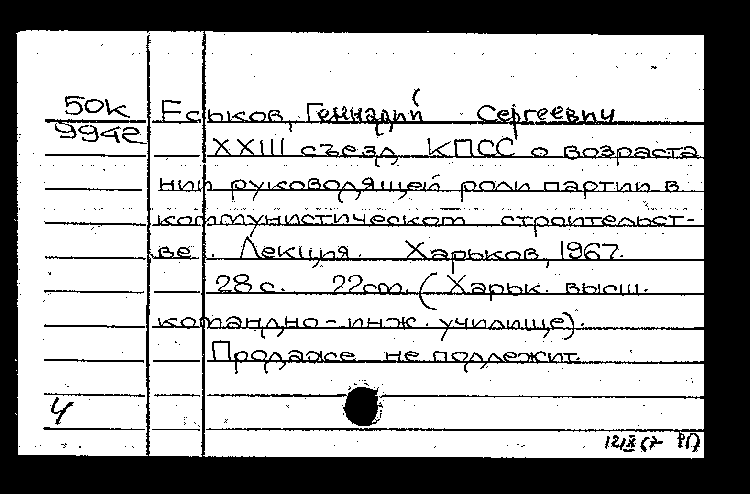 50К Еськов, Геннадий Сергеевич
994е
XXIII съезд КПСС о возраста
нии руководящей роли партии в
коммунистическом строительст-
ве. Лекция. Харьков, 1967.
28 с. 22 см. (Харьк. высш.
командно-инж. училище).
Продаже не подлежит.
4